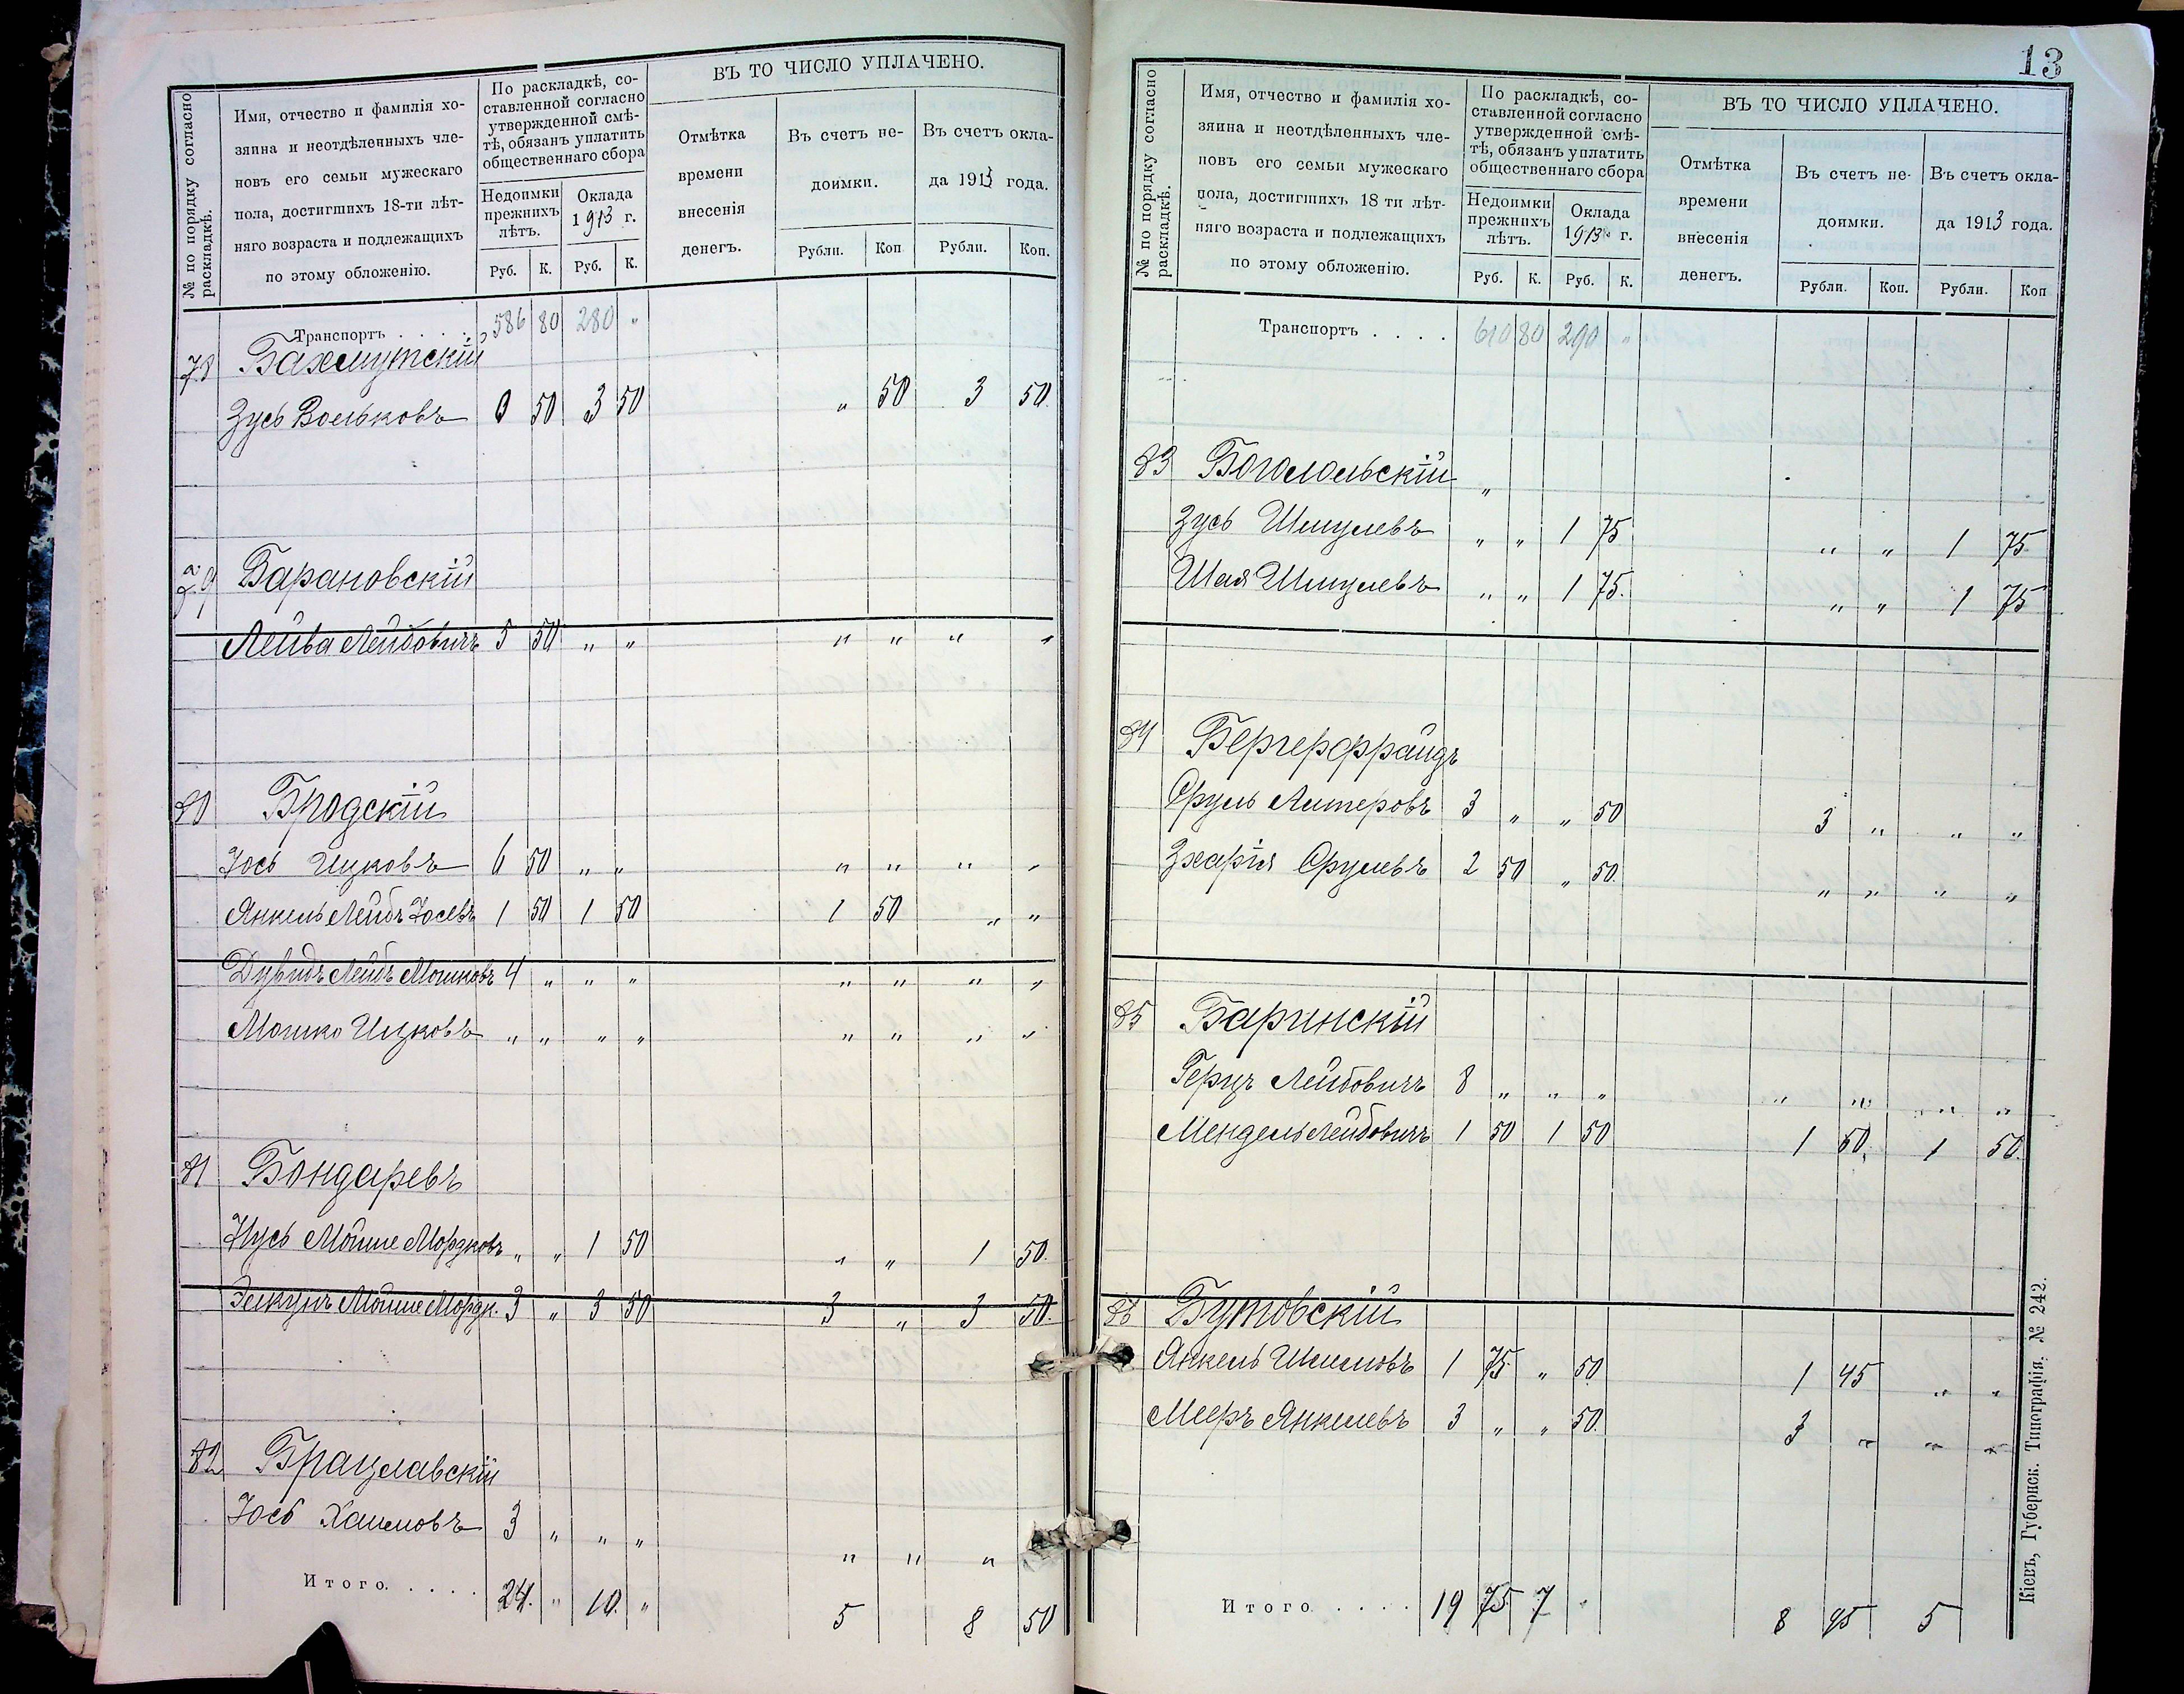 № по порядку согласно раскладкѣ.
Имя, отчество и фамилія хо-
зяина и неотдѣленныхъ чле-
новъ его семьи мужескаго
пола, достигшихъ 18-ти лѣт-
няго возраста и подлежащихъ
по этому обложенію.
По раскладкѣ, со-
ставленной согласно
утвержденной смѣ-
тѣ, обязанъ уплатить
общественнаго сбора
Недоимки
прежнихъ
лѣтъ.
Оклада
1913 г.
Руб. К. Руб. К.
ВЪ ТО ЧИСЛО УПЛАЧЕНО.
Отмѣтка
времени
внесенія
денегъ.
Въ счетъ не-
доимки.
Въ счетъ окла-
да 1913 года.
Рубли. Коп Рубли. Коп.
Транспортъ . . . . . 586 80 280 "
78 Бахмутскій
Зусь Вольковъ 0 50 3 50 " 50 3 50.
79 Барановскій
Лейба Лейбовичъ 5 50 " " " " " "
80 Бродскій
Іось Ицковъ 6 50 " " " " " "
Янкель Лейбъ Іосевъ 1 50 1 50 1 50 " "
Дувидъ Лейбъ Мошковъ 4 " " " " " " "
Мошко Ицковъ " " " " " " " "
81 Бондаревъ
Нусь Мойше Мордковъ " " 1 50 " " 1 50.
Зелкунъ Мойше Мордк. 3 " 3 50 3 " 3 50.
82 Брацлавскій
Іось Хаимовъ 3 " " " " " "
Итого. . . . . 24. " 10. " 5 8 50
13
№ по порядку согласно раскладкѣ.
Имя, отчество и фамилія хо-
зяина и неотдѣленныхъ чле-
новъ его семьи мужескаго
пола, достигшихъ 18 ти лѣт-
няго возраста и подлежащихъ
по этому обложенію.
По раскладкѣ, со-
ставленной согласно
утвержденной смѣ-
тѣ, обязанъ уплатить
общественнаго сбора
Недоимки
прежнихъ
лѣтъ.
Оклада
1913 г.
Руб. К. Руб. К.
ВЪ ТО ЧИСЛО УПЛАЧЕНО.
Отмѣтка
времени
внесенія
денегъ.
Въ счетъ не-
доимки.
Въ счетъ окла-
да 1913 года.
Рубли. Коп. Рубли. Коп
Транспортъ . . . . 610 80 290 "
83 Богомольскій "
Зусь Шмулевъ " " 1 75 " " 1 75.
Шая Шмулевъ " " 1 75. " " 1 75
84 Бергерфрайдъ
Сруль Алтеровъ 3 " " 50 3 " " "
Зхарія Срулевъ 2 50 " 50. " " " "
85 Баринскій
Герцъ Лейбовичъ 8 " " " " " " "
Мендель Лейбовичъ 1 50 1 50 1 50. 1 50.
86 Бутовскій
Янкель Шмилковъ 1 75. " 50. 1 45 " "
Мееръ Янкелевъ 3 " " 50. 3 " " "
Итого . . . . 19 75 7 " 8 95 5
Кіевъ, Губернск. Типографія. № 242.